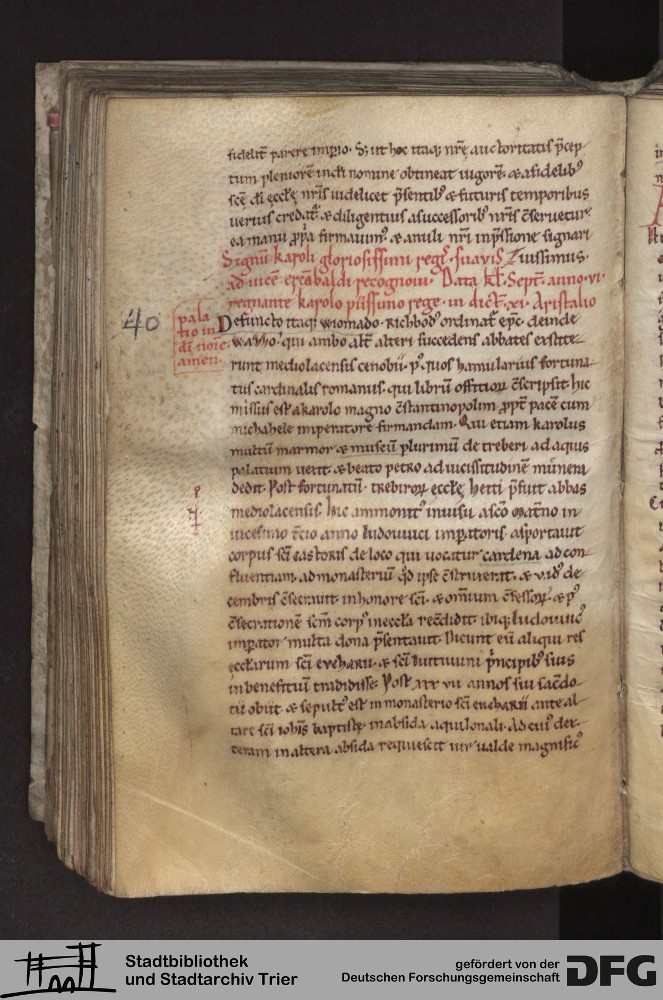 fidelit̄ parere imꝑio. Sꝫ ut hoc itaqꝫ nrē auctoritatis p̄cep-
tum pleniorē in dī nomine obtineat uigorē. & a fidelibꝰ
scē dī eccłę nr̄is uidelicet p̄sentibꝰ & futuris temporibus
uerius credat̄. & diligentius a successoribꝰ nr̄is c̄seruetur.
ea manu ꝓpͥa firmauimꝰ. & anuli nr̄i inp̄ssione signari
Signū karoli gloriosissimi regꝭ. suauiS iussimus.
ad uicē ercābaldi recognoui. Data kł. Sept̄. anno. vi.
regnante karolo piissimo rege. in dict̄. xi. Aristalio
40
pala
tio in
dī noīe
amen.
Defuncto itaqꝫ wiomado. Richbodꝰ ordinat̄ epc̄. deinde
wazzo. qui ambo alt̄ alteri succedens abbates exstite-
runt mediolacensis cenobii. pꝰ quos hamularius fortuna
tus cardinalis romanus. qui librū offitioꝝ c̄scripsit hic
missus est a karolo magno c̄stantinopolim ꝓpt̄ pacē cum
michahele imperatore firmandam. Qui etiam karolus
multū marmor & museū plurimū de treberi ad aquis
palatium uexit. & beato petro ad uicissitudinē munera
dedit. Post fortunatū. trebiroꝝ eccłę hetti p̄fuit abbas
mediolacensis. hic ammonitꝰ in uisu a sc̄o
uicesimo t̄cio anno ludouuici imꝑatoris. asportauit
corpus sc̄i castoris de loco qui uocatur cardena ad con-
fluentiam. ad monasteriū qd̄ ipse c̄struxerat. & v. idꝰ de-
cembris c̄secrauit in honore sc̄i. & omnium c̄fessoꝝ. & pꝰ
c̄secrationē sc̄m corpꝰ in eccła recc̄didit. ibiqꝫ ludouuicꝰ
imꝑator multa dona p̄sentauit. Dicunt eū aliqui res
eccłarum sc̄i eucharii. & sc̄i ... pͥncipibꝰ suis
in benefitiū tradidisse. Post xxx vii annos sui sac̄do-
tii obiit. & sepultꝰ est in monasterio sc̄i eucharii ante al-
tare sc̄i ioh̄is baptistę in absida aquilonali. Ad cuiꝰ dex-
teram in altera absida requiescit uir ualde magnificꝰ
Stadtbibliothek
und Stadtarchiv Trier
gefördert von der
Deutschen Forschungsgemeinschaft
DFG